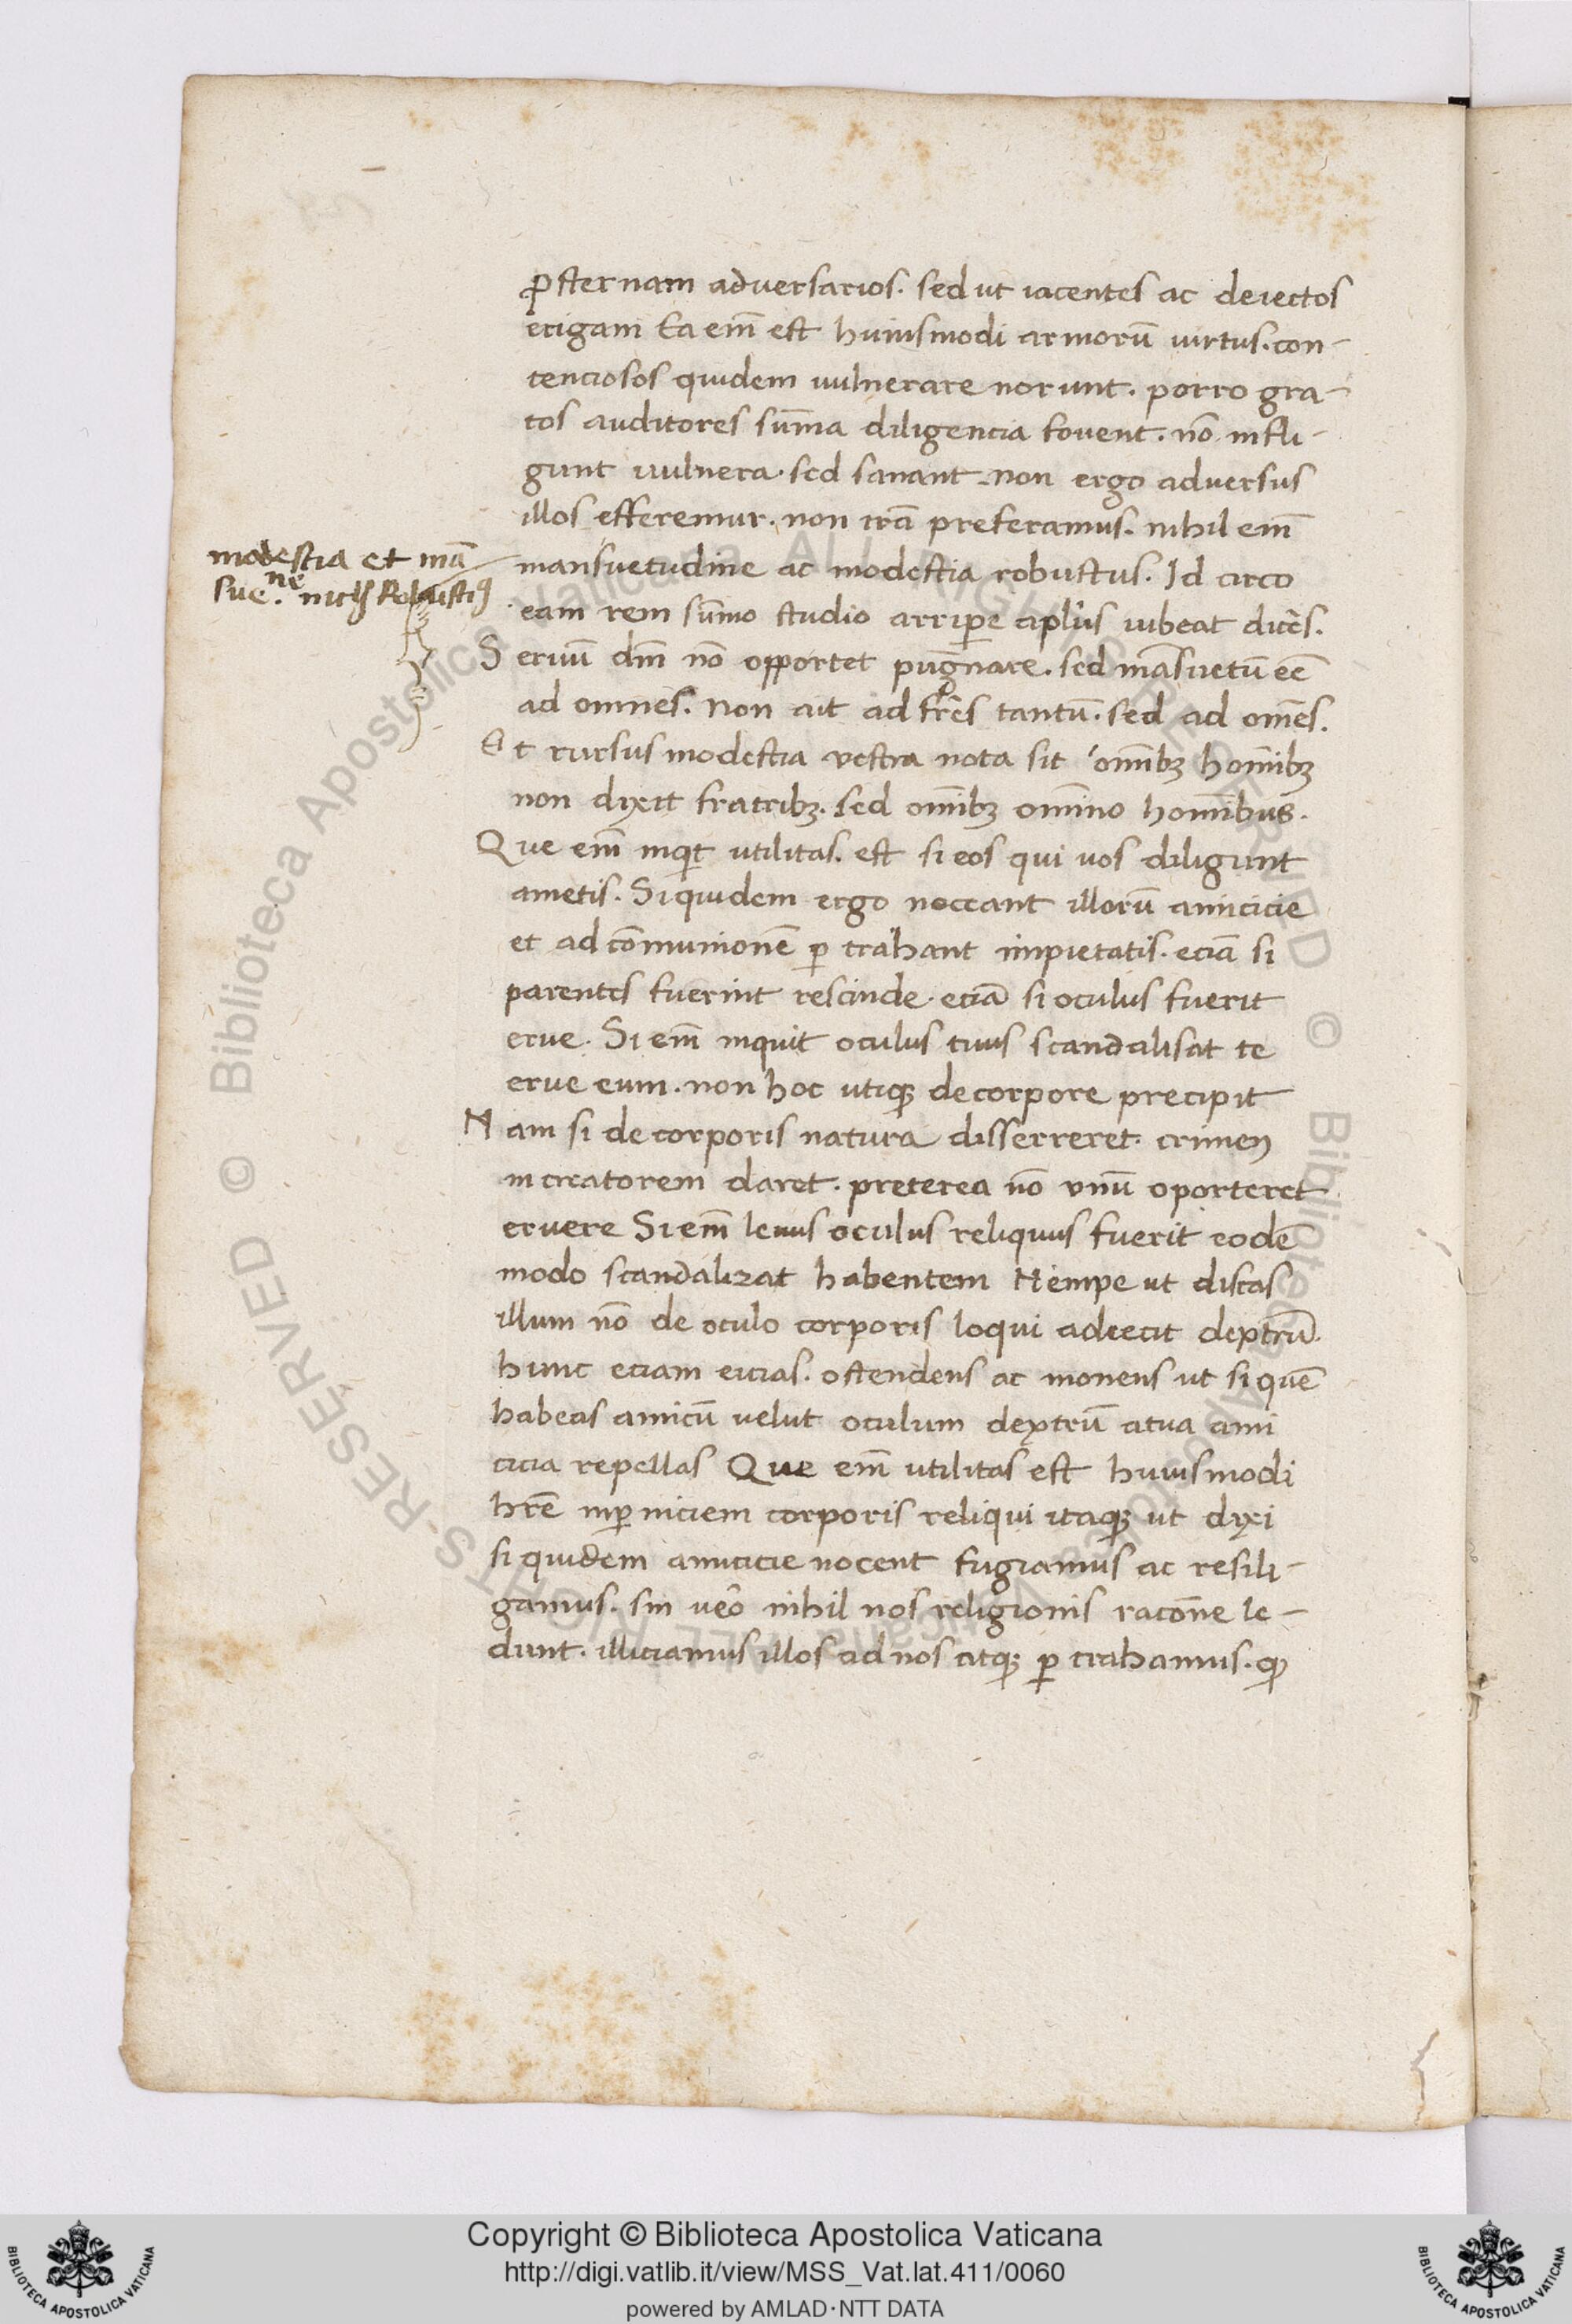 ꝓsternam adversarios. sed ut iacentes ac deiectos
erigam Ea em̃ est huiusmodi armorũ uirtus. con-
tenciosos quidem uulnerare norunt. porro gra-
tos auditores sum̃a diligencia fouent. nõ infli-
gunt uulnera. sed sanant. non ergo adversus
illos efferemur. non irã preferamus. nihil em̃
modestia et mã
sue.ne nichil Robustiꝰ
mansuetudine ac modestia robustus. Id circo
eam rem sum̃o studio arriꝑe aplũs iubeat dicẽs.
Seruũ dm̃ nõ opportet pugnare. sed mãsuetũ eẽ
ad omnes. Non ait ad frẽs tantũ. sed ad om̃es.
Et rursus modestia vestra nota sit om̃ibꝫ hom̃ibꝫ
non dixit fratribꝫ. sed om̃ibꝫ om̃ino hom̃ibus.
Que em̃ inqͥt utilitas. est si eos qui uos diligunt
ametis. Si quidem ergo noceant illorũ amicicie
et ad cõmunionẽ ꝑ trahant impietatis. eciã si
parentes fuerint rescinde. eciã si oculus fuerit
erue. Si em̃ inquit oculus tuus scandalisat te
erue eum. non hoc utiqꝫ de corpore precipit
Nam si de corporis natura disserreret. crimen
in creatorem daret. preterea nõ vnũ oporteret
eruere Si em̃ leuus oculus reliquus fuerit eodẽ
modo scandalizat habentem Nempe ut discas
illum nõ de oculo corporis loqui adiecit dextrũ.
hunc eciam eicias. ostendens ac monens ut si quẽ
habeas amicũ velut oculum dextrũ a tua ami
cicia repellas Que em̃ utilitas est huiusmodi
hrẽ in ꝑniciem corporis reliqui itaqꝫ ut dixi
si quidem amicicie nocent fugiamus ac resili-
gamus. sin uẽo nihil nos religionis racõne le-
dunt. illiciamus illos ad nos atqꝫ ꝑ trahamus. ꝙ
Copyright © Biblioteca Apostolica Vaticana
http://digi.vatlib.it/view/MSS_Vat.lat.411/0060
powered by AMLAD·NTT DATA